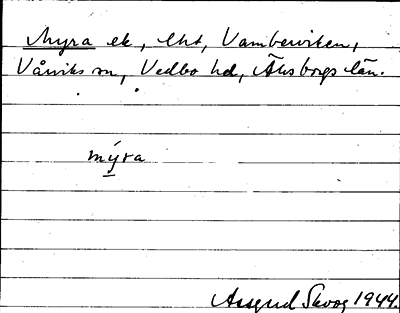 Myra ek, lht, Vamberviken,
Vårviks sn, Vedbo hd, Älvsborgs län.
mýra
Assgrud Skoog 1944.